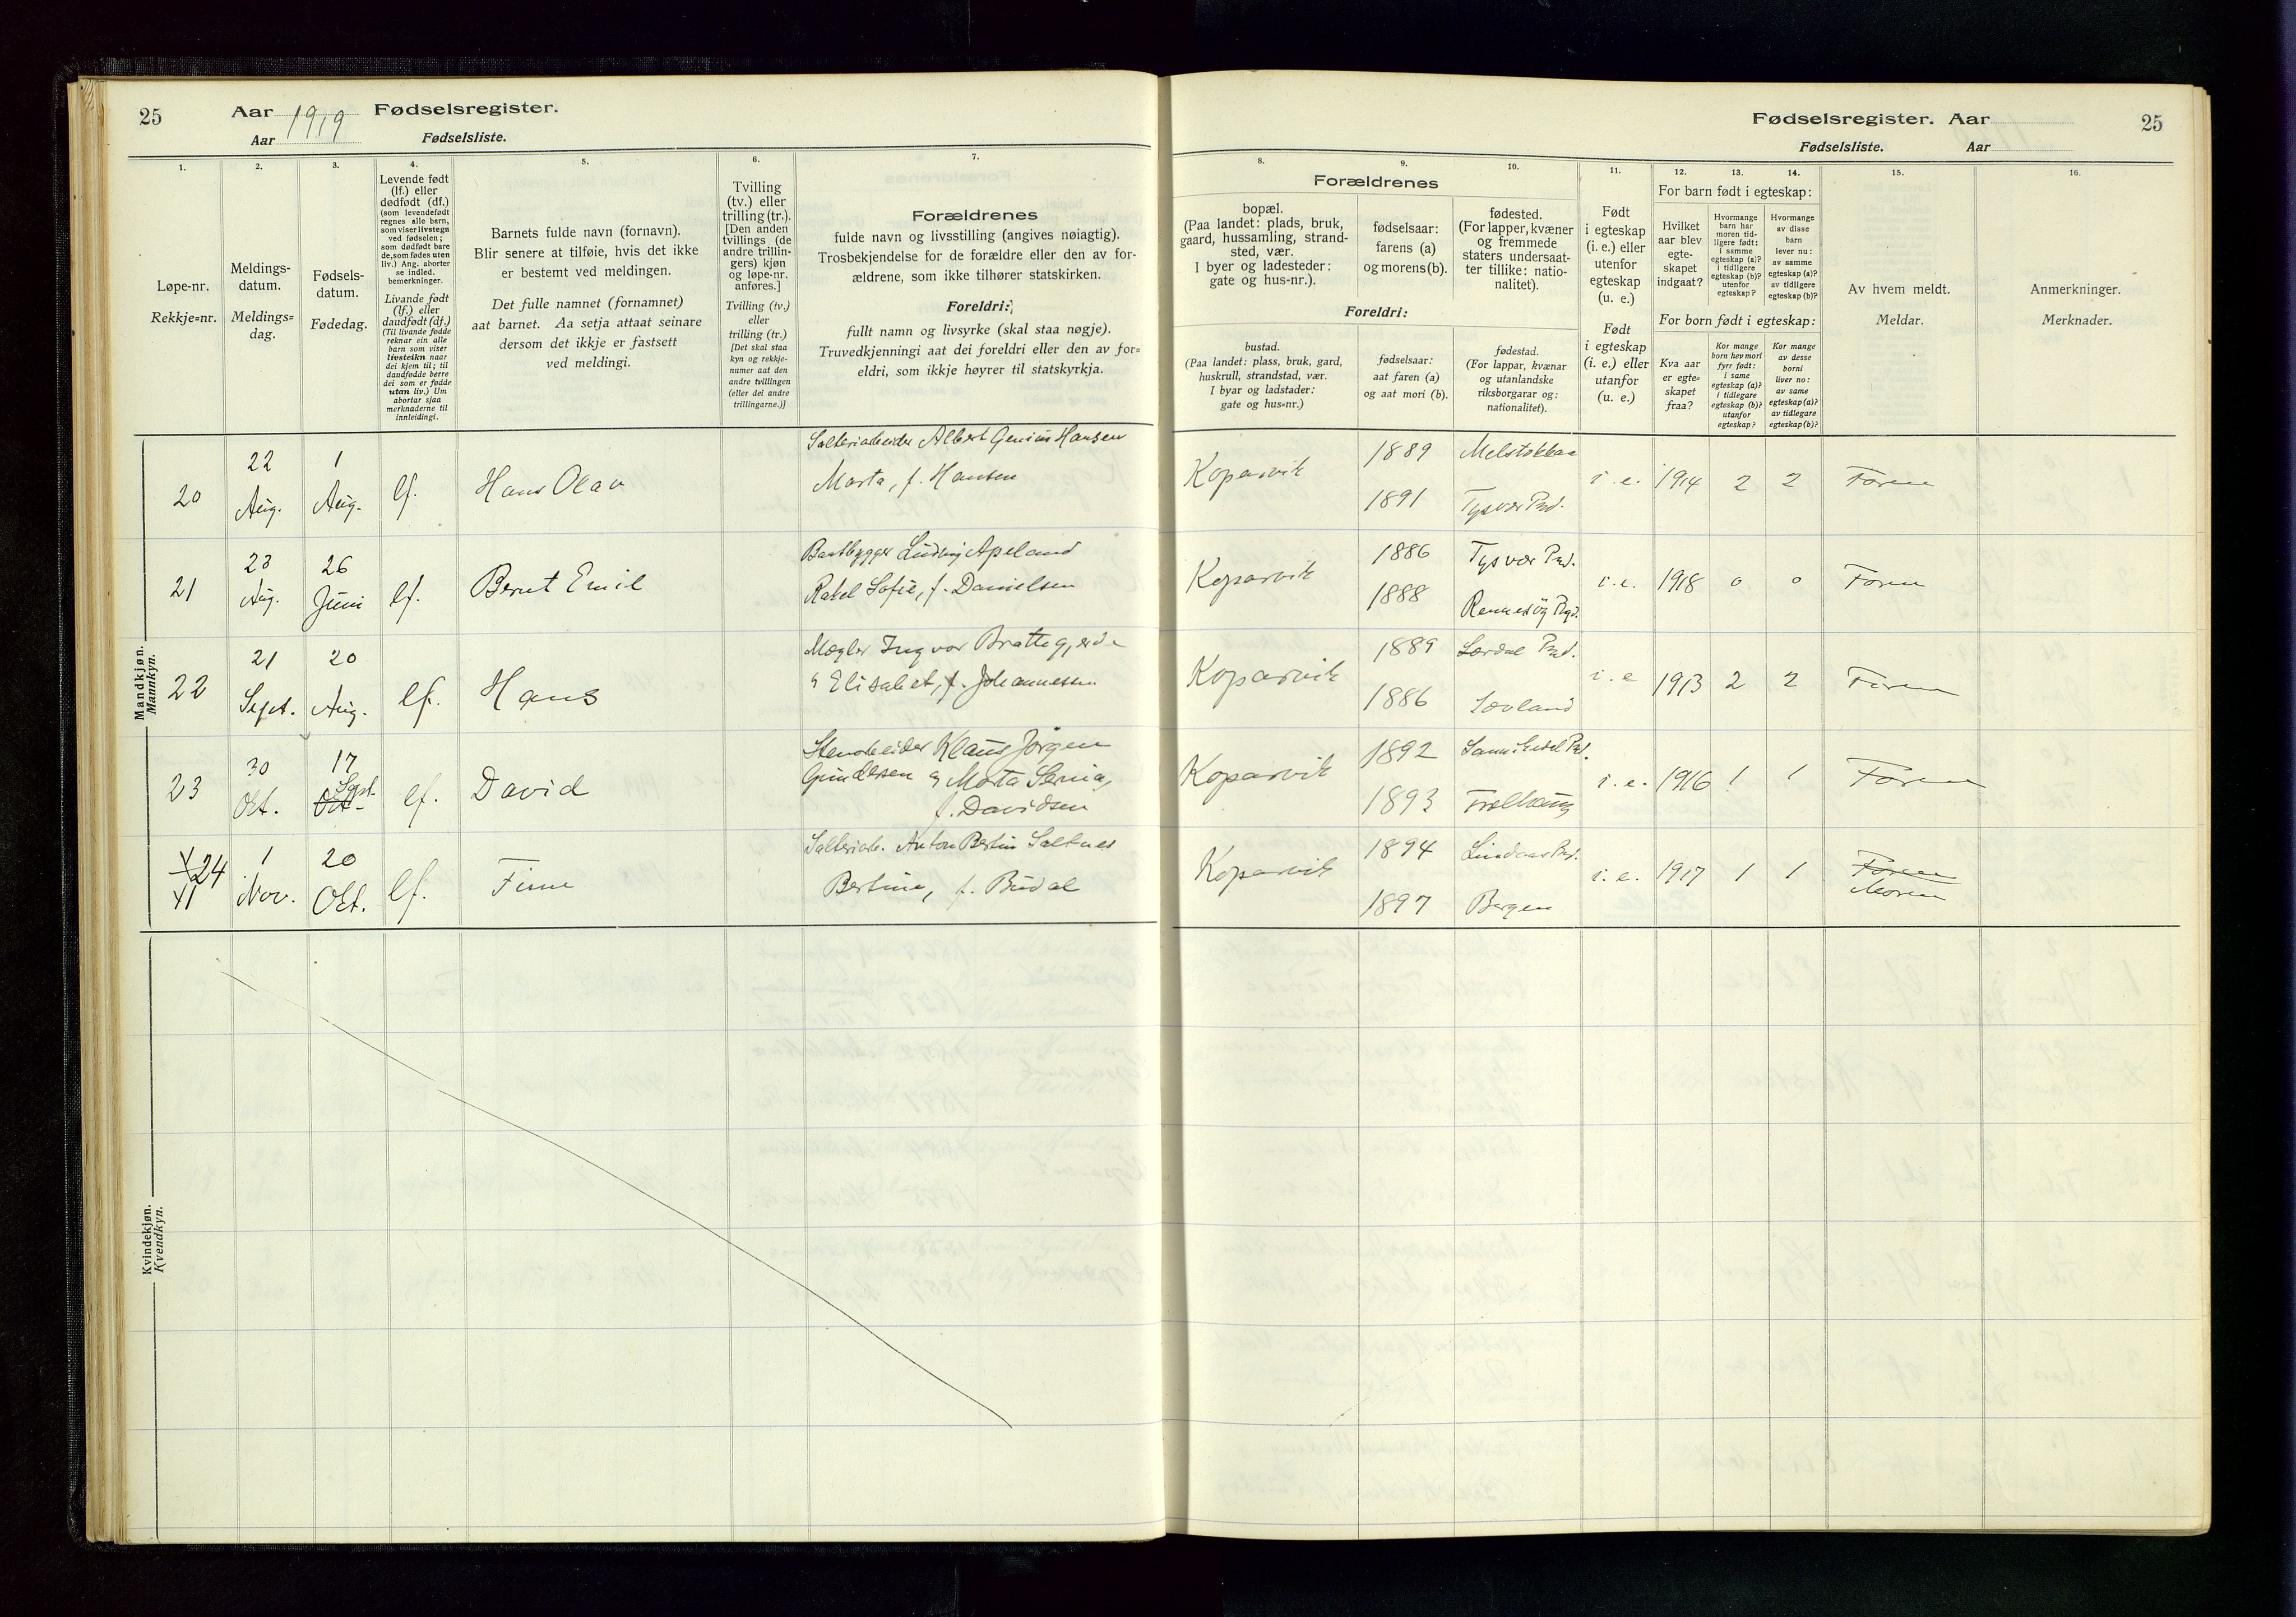 25
Aar 1919 Fødselsregister.
Aar Fødselsliste.
1.
2.
3.
4.
5.
6.
7.
Løpe-nr.
Rekkje=nr.
Meldings-
datum.
Meldings=
dag.
Fødsels-
datum.
Fødedag.
Levende født
(lf.) eller
dødfødt (df.)
(som levendefødt
regnes alle barn,
som viser livstegn
ved fødselen;
som dødfødt bare
de, som fødes uten
liv.) Ang. aborter
se indled.
bemerkninger.
Livande født
(lf.) eller
daudfødt (df.)
(Til livande fødde
reknar ein alle
barn som viser
livsteikn naar
dei kjem til; til
daudfødde berre
dei som er fødde
utan liv.) Um
abortar sjaa
merknaderne til
innleidingi.
Barnets fulde navn (fornavn).
Blir senere at tilføie, hvis det ikke
er bestemt ved meldingen.
Det fulle namnet (fornamnet)
aat barnet. Aa setja attaat seinare
dersom det ikkje er fastsett
ved meldingi.
Tvilling
(tv.) eller
trilling (tr.).
[Den anden
tvillings (de
andre trillin-
gers) kjøn
og løpe-nr.
anføres.]
Tvilling (tv.)
eller
trilling (tr.)
[Det skal staa
kyn og rekkje-
numer aat den
andre tvillingen
(eller dei andre
trillingarne.)]
Forældrenes
fulde navn og livsstilling (angives nøiagtig).
Trosbekjendelse for de forældre eller den av for-
ældrene, som ikke tilhører statskirken.
Foreldri:
fullt namn og livsyrke (skal staa nøgje).
Truvedkjenningi aat dei foreldri eller den av for=
eldri, som ikkje høyrer til statskyrkja.
Mandkjøn.
Mannkyn.
20
22
Aug.
1
Aug.
lf.
Hans Olav
Salteriarbeider Albert Genius Hansen
Marta, f. Hansen
21
23
Aug.
26
Juni
lf.
Bernt Emil
Baatbygger Ludvig Apeland
Rakel Sofie, f. Danielsen
22
21
Sept.
20
Aug.
lf.
Hans
Mægler Ingvar Brattegjerde
& Elisabet, f. Johannessen
23
30
Okt.
17
Sept.
Okt.
lf.
David
Stenarbeider Klaus Jörgen
Gundersen & Marta Serina,
f. Davidsen
24
1
Nov.
20
Okt.
lf.
Finn
Salteriarb. Anton Bertin Saltnes
Bertine, f. Budal
Kvindekjøn.
Kvendkyn.
Fødselsregister. Aar
25
Fødselsliste. Aar
8.
9.
10.
11.
12.
13.
14.
15.
16.
Forældrenes
bopæl.
(Paa landet: plads, bruk,
gaard, hussamling, strand-
sted, vær.
I byer og ladesteder:
gate og hus-nr.).
fødselsaar:
farens (a)
og morens (b).
fødested.
(For lapper, kvæner
og fremmede
staters undersaat-
ter tillike: natio-
nalitet).
Foreldri:
bustad.
(Paa landet: plass, bruk, gard,
huskrull, strandstad, vær.
I byar og ladstader:
gate og hus=nr.)
fødselsaar:
aat faren (a)
og aat mori (b).
fødestad.
(For lappar, kvænar
og utanlandske
riksborgarar og:
nationalitet).
Født
i egteskap
(i. e.) eller
utenfor
egteskap
(u. e.)
Født
i egteskap
(i. e.) eller
utanfor
(u. e.)
For barn født i egteskap:
Hvilket
aar blev
egte-
skapet
indgaat?
Hvormange
barn har
moren tid-
ligere født:
i samme
egteskap (a)?
i tidligere
egteskap (b)?
utenfor
egteskap?
Hvormange
av disse
barn
lever nu:
av samme
egteskap (a)?
av tidligere
egteskap (b)?
For born født i egteskap:
Kva aar
er egte=
skapet
fraa?
Kor mange
born hev mori
fyrr født:
i same
egteskap (a)?
i tidlegare
egteskap (b)?
utanfor
egteskap?
Kor mange
av desse
borni
liver no:
av same
egteskap (a)?
av tidlegare
egteskap (b)?
Av hvem meldt.
Meldar.
Anmerkninger.
Merknader.
Kopervik
1889
1891
Melstokkaa
Tysvær Prd.
i. e.
1914
2
2
Faren
Kopervik
1886
1888
Tysvær Prd.
Rennesöy Prgd.
i. e.
1918
0
0
Faren
Kopervik
1889
1886
Lærdal Prd.
Sævland
i. e
1913
2
2
Faren
Kopervik
1892
1893
i. e.
1916
1
1
Faren
Kopervik
1894
1897
Lindaas Prd.
Bergen
i. e.
1917
1
1
Faren
Moren